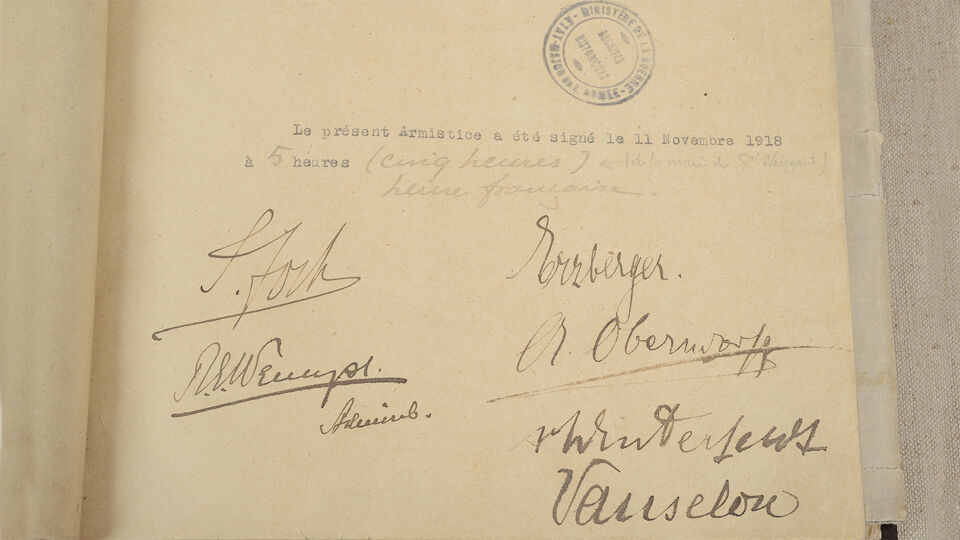 ETAT-MAJOR DE L'ARMEE - MINISTÈRE DE LA GUERRE -
ARCHIVES
HISTORIQUES
Le présent Armistice a été signé le 11 Novembre 1918
à 5 heures (cinq heures)
heure française
F. Foch
Erzberger.
A. Oberndorff
R.E. Wemyss.
Admiral.
v Winterfeldt
Vanselow